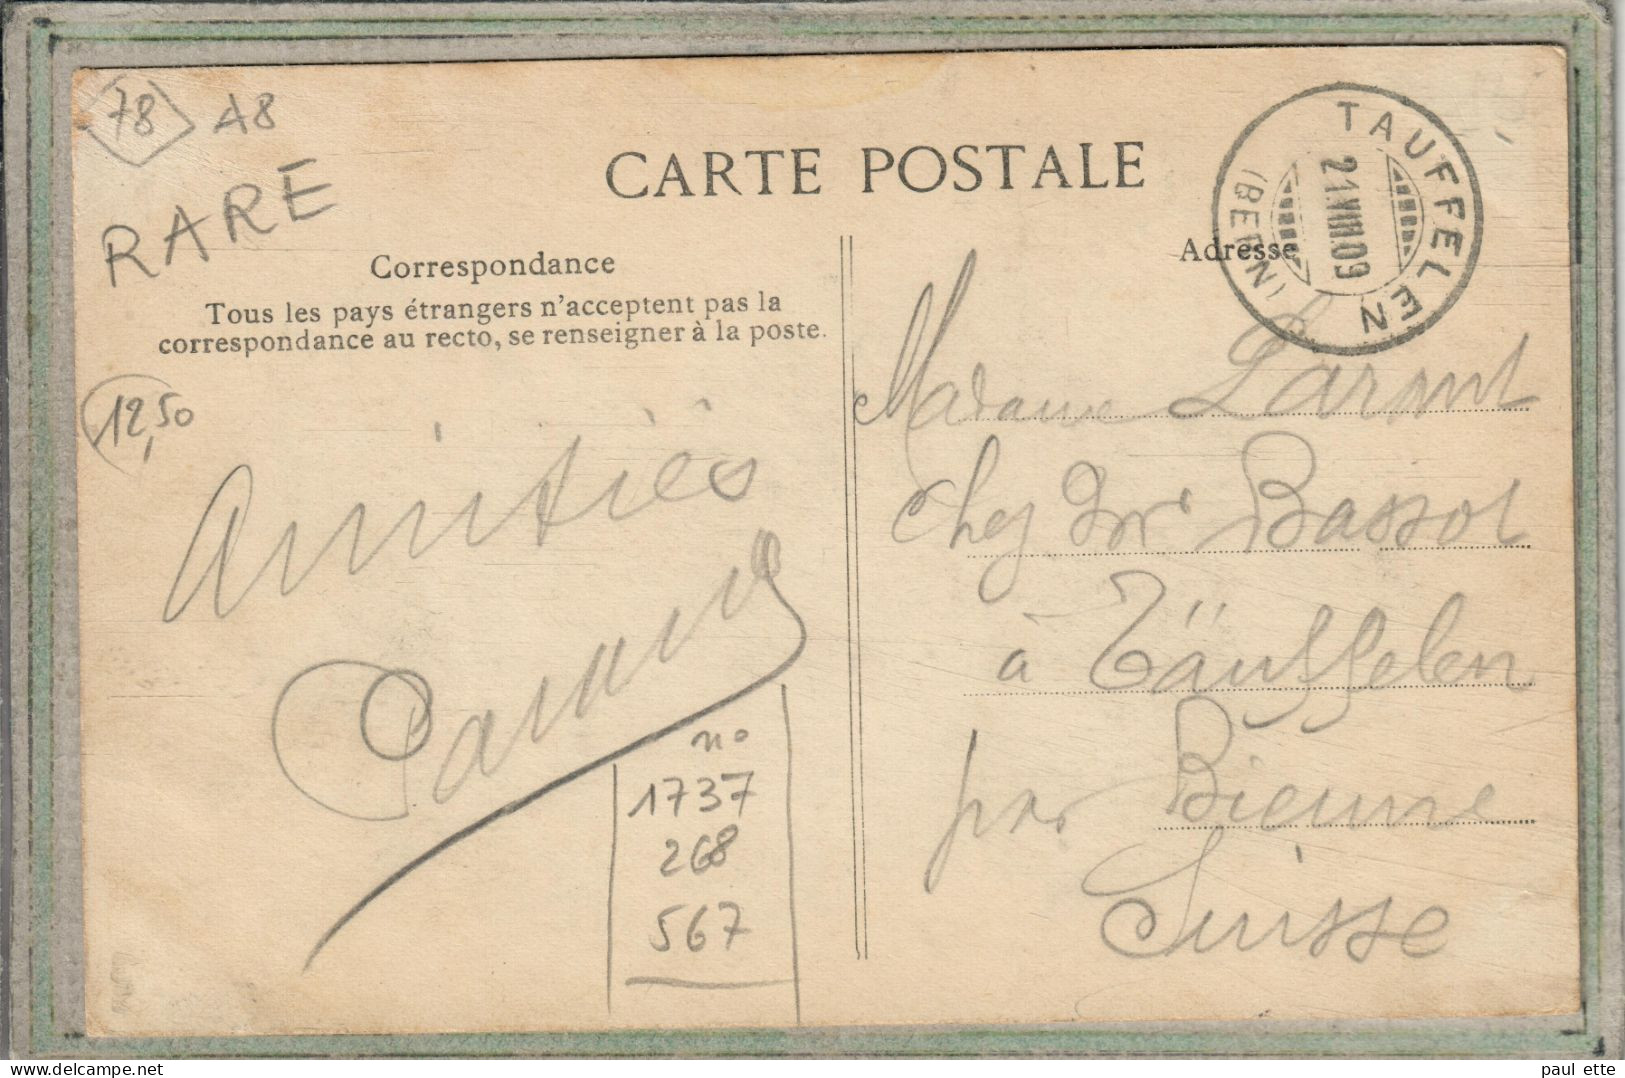 78 A8
RARE
CARTE POSTALE
TAUFFELEN
21.VIII.09
(BERN)
Correspondance
Adresse
Tous les pays étrangers n'acceptent pas la
correspondance au recto, se renseigner à la poste.
12,50
Amitiés
Madame
chez Mr Bassot
à Täuffelen
par Bienne
Suisse
no
1737
268
567
delcampe.net
paul ette